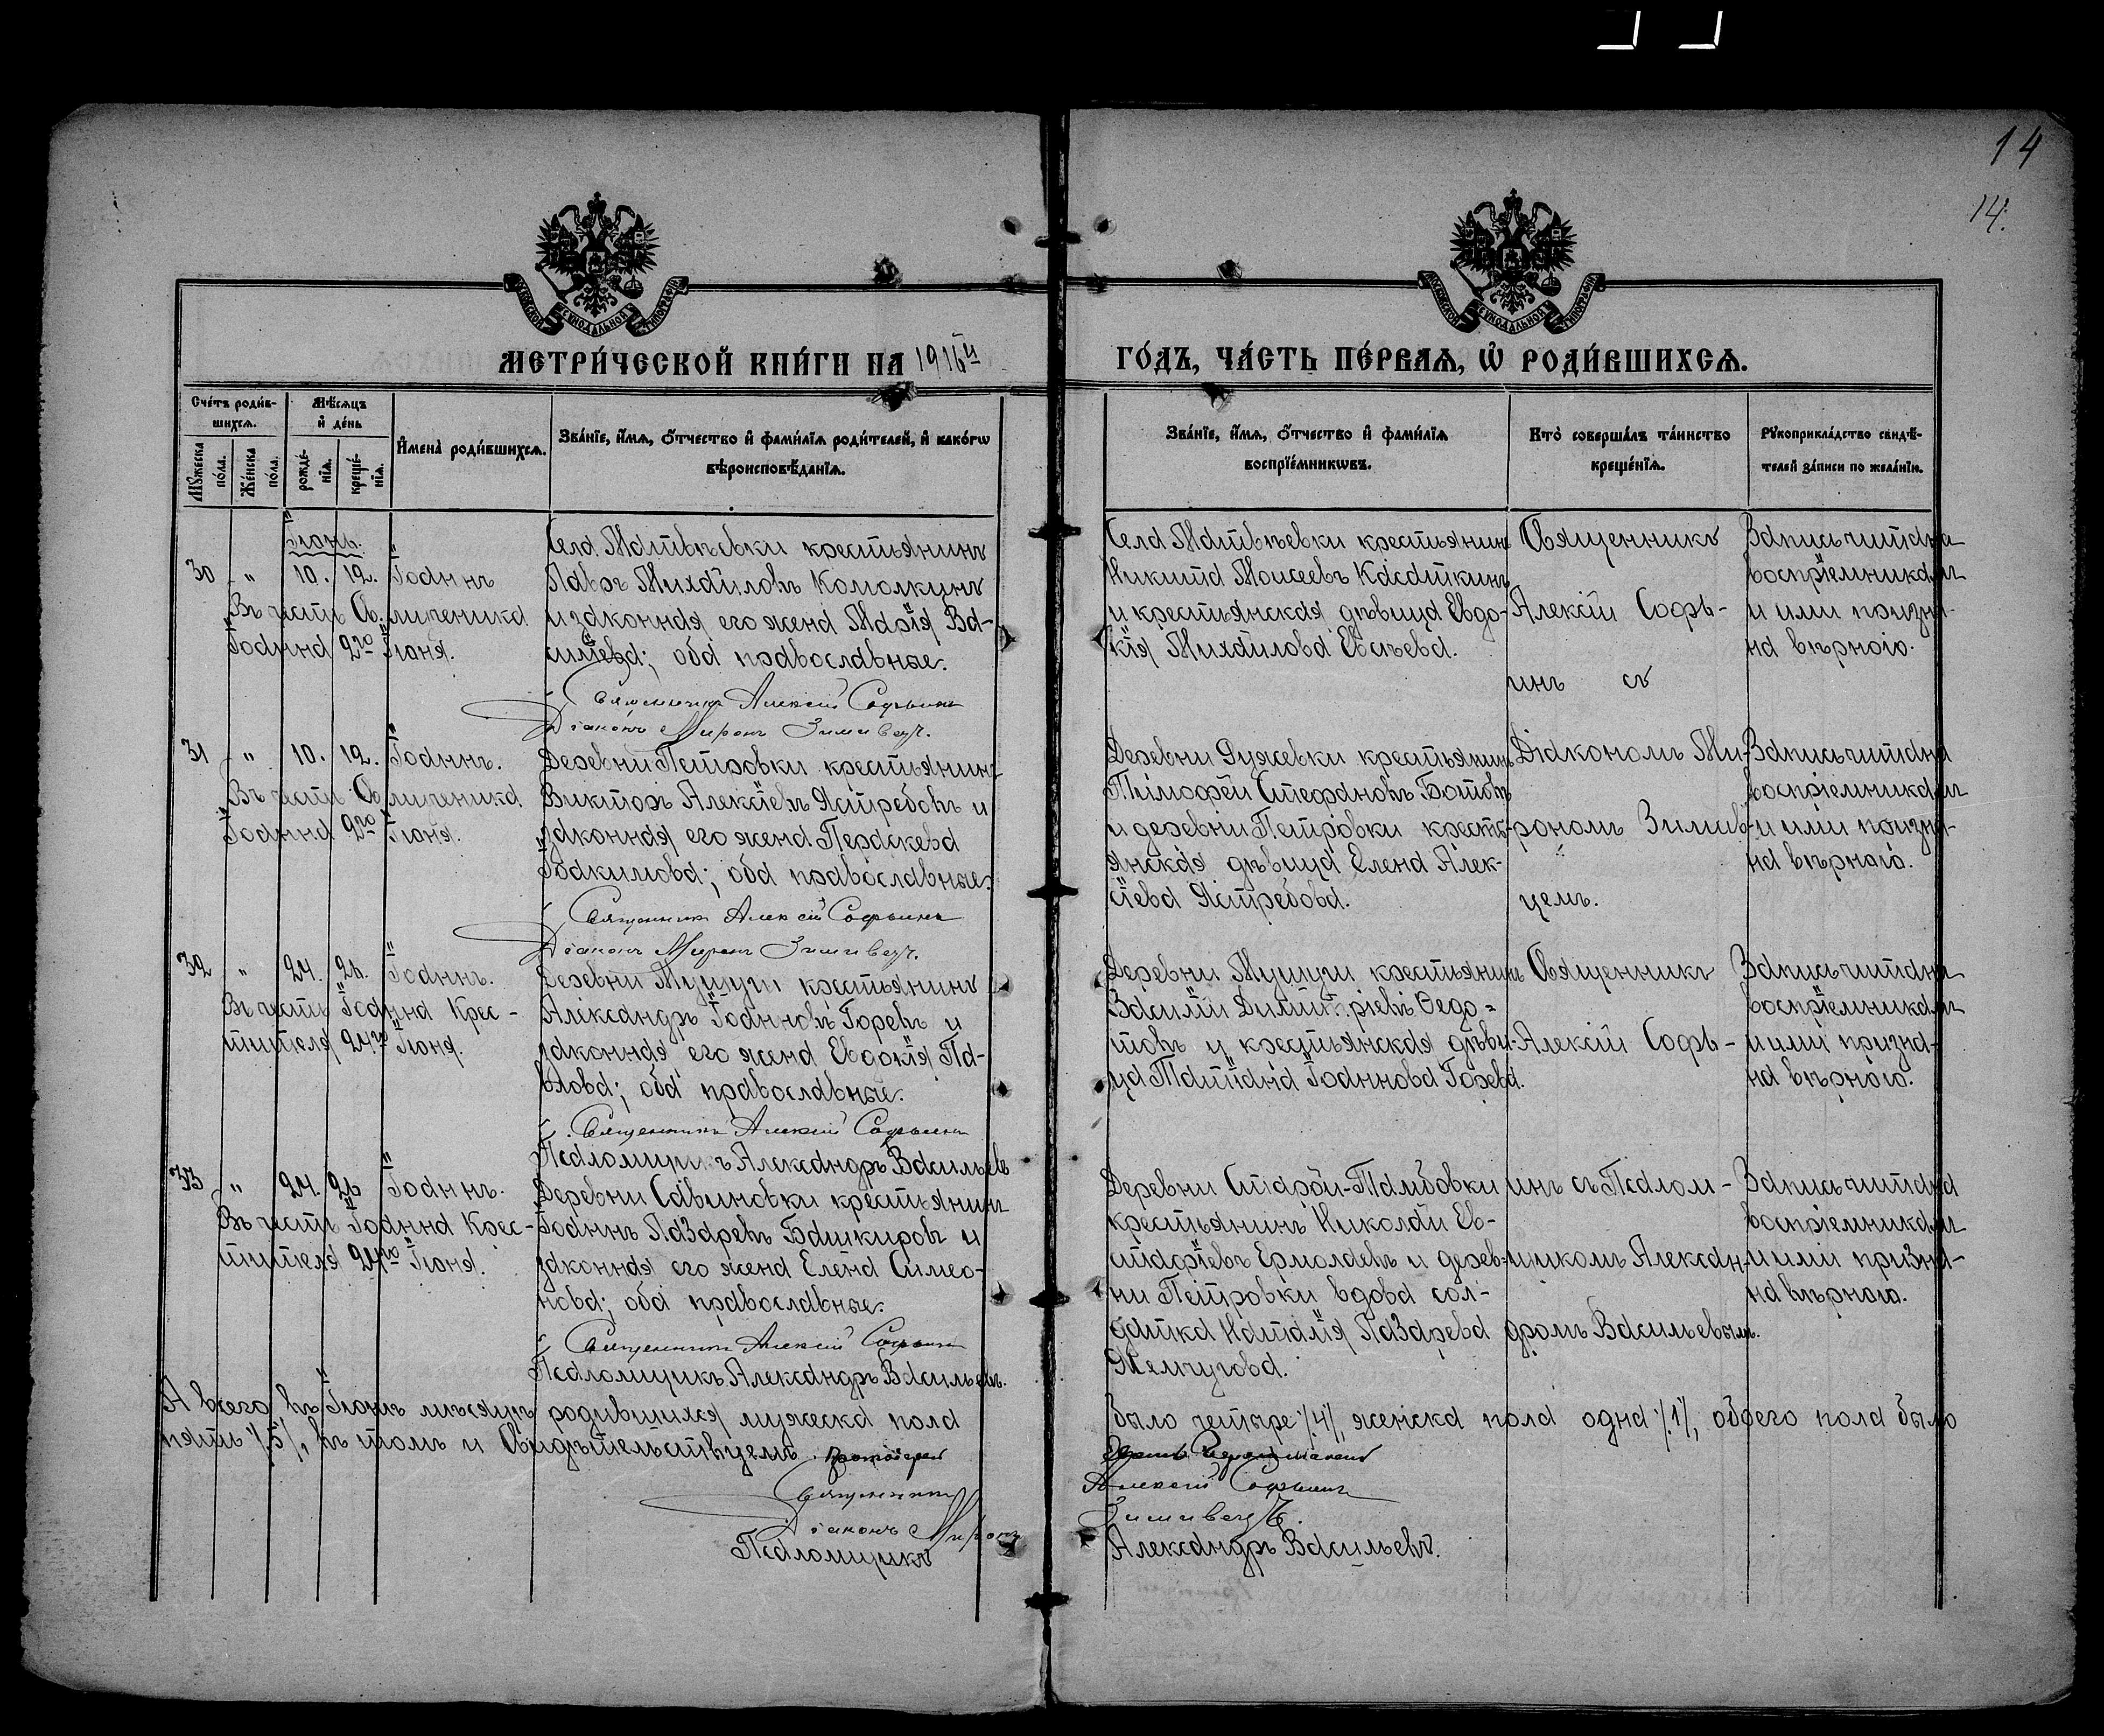 14
14.
МОСКОВСКОЙ СУНОДАЛЬНОЙ ТИПОГРАФІИ
МОСКОВСКОЙ СУНОДАЛЬНОЙ ТИПОГРАФІИ
МЕТРИ́ЧЕСКОЙ КНИ́ГИ НА 1916й
ГО́ДЪ, ЧА́СТЬ ПЕ́РВАѦ, Ѡ҆ РОДИ́ВШИХСѦ.
Сче́тъ роди́в-
шихсѧ.
Мѣ́сѧцъ
и҆ де́нь
Мꙋ́жеска
по́ла.
Же́нска
по́ла.
рожде́-
нїѧ.
креще́-
нїѧ.
И҆мена̀ роди́вшихсѧ.
Зва́нїе, и҆́мѧ, ѻ҆́тчество и҆ фами́лїѧ роди́телей, и҆ како́гѡ
вѣроисповѣ́данїѧ.
Зва́нїе, и҆́мѧ, ѻ҆́тчество и҆ фами́лїѧ
воспрїе́мникѡвъ.
Кто̀ соверша́лъ та́инство
креще́нїѧ.
Рꙋкоприкла́дство свидѣ́-
телей за́писи по жела́нїю.
Іюнь.
30 " 10. 12. Іоаннъ
Въ честь Св. мученика
Іоанна 2го Іюня.
Села Матвѣевки крестьянинъ
Павелъ Михайловъ Комолкинъ
и законная его жена Марія Ва-
сильева; оба православные.
Священникъ Алексій Софьинъ
Діаконъ Миронъ Зимивецъ.
Села Матвѣевки крестьянинъ
Никита Моисеевъ Касаткинъ
и крестьянская дѣвица Евдо-
кія Михайлова Евсѣева.
Священникъ
Алексій Софь-
инъ съ
Запись читана
воспріемникамъ
и ими призна-
на вѣрною.
31 " 10. 12. Іоаннъ.
Въ честь Св мученика
Іоанна 2го Іюня.
Деревни Петровки крестьянинъ
Викторъ Алексіевъ Ястребовъ и
законная его жена Параскева
Іоакимова; оба православные.
Священникъ Алексій Софьинъ
Діаконъ Миронъ Зимивецъ.
Тімофей Стефановъ
и деревни Петровки кресть-
янская дѣвица Елена Алек-
сіева Ястребова.
Діакономъ Ми-
рономъ Зимив-
цемъ.
Запись читана
воспріемникамъ
и ими призна-
на вѣрною.
32 " 24. 26. Іоаннъ.
Въ честь Іоанна Крес-
тителя 24го Іюня.
Деревни Мушуги крестьянинъ
Александръ Іоанновъ Горевъ и
законная его жена Евдокія Па-
влова; оба православные.
Священникъ Алексій Софьинъ
Псаломщикъ Александръ Васильевъ
Деревни Мушуги крестьянинъ
Василій Димитріевъ Ѳедо-
товъ и крестьянская дѣви-
ца Татіана Іоаннова Горева.
Священникъ
Алексій Софь-
Запись читана
воспріемникамъ
и ими призна-
на вѣрною.
33 " 24. 26 Іоаннъ.
Въ честь Іоанна Крес-
тителя 24го Іюня.
Деревни Савиновки крестьянинъ
Іоаннъ Лазаревъ Башкировъ и
законная его жена Елена Симео-
нова; оба православные.
Священникъ Алексій Софьинъ
Псаломщикъ Александръ Васильевъ.
Деревни Старой-Тамбовки
крестьянинъ Николай Ев-
стафіевъ Ермолаевъ и дерев-
ни Петровки вдова сол-
датка Наталія Лазарева
Жемчугова.
инъ съ Псалом-
щикомъ Алексан-
дромъ Васильевымъ.
Запись читана
воспріемникамъ
и ими призна-
на вѣрною.
А всего въ Іюнѣ мѣсяцѣ родившихся мужеска пола
было четыре /4/, женска пола одна /1/, обоего пола было
пять /5/, въ томъ и Свидѣтельствуемъ.
Священникъ
Алексій Софьинъ
Діаконъ Миронъ
Зимивецъ.
Псаломщикъ
Александръ Васильевъ.